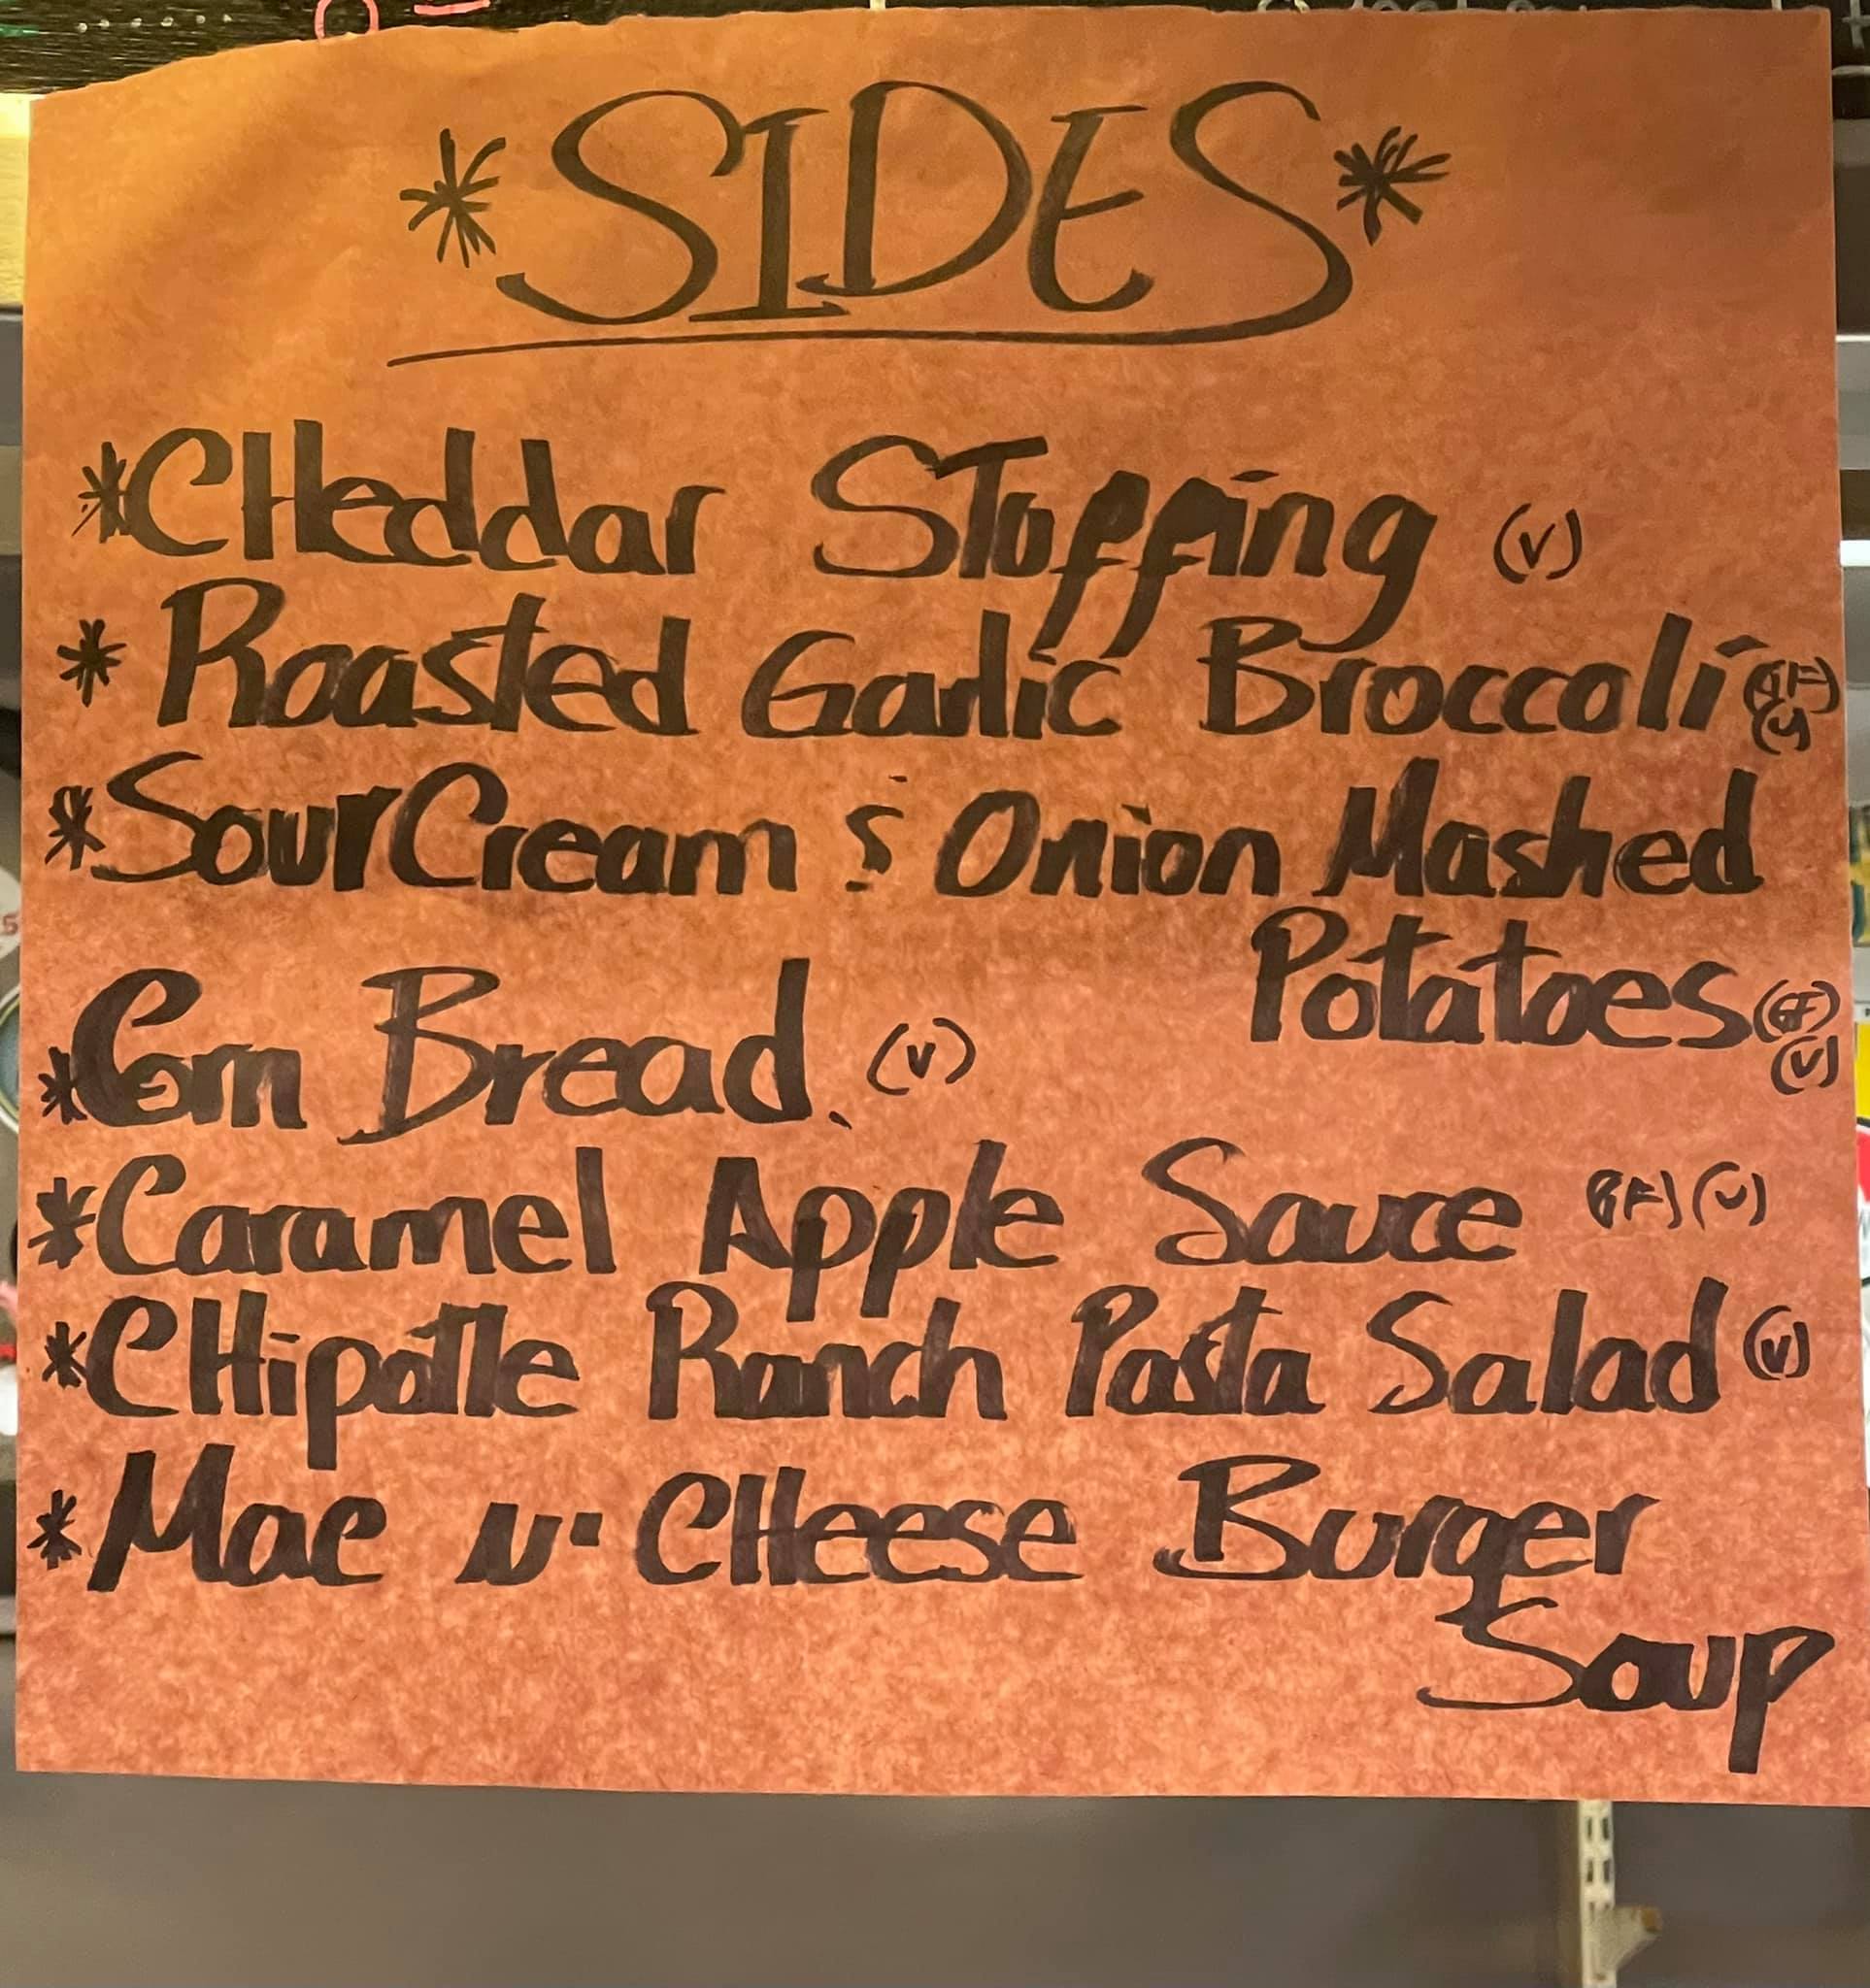 *SIDES*
*CHeddar STuffing (v)
* Roasted Garlic Broccoli (GF)
(v)
*Sour Cream & Onion Mashed
Potatoes (GF)
(v)
*Corn Bread. (v)
*Caramel Apple Sauce (GF) (v)
*CHipotle Ranch Pasta Salad (v)
*Mac n· CHeese Burger
Soup